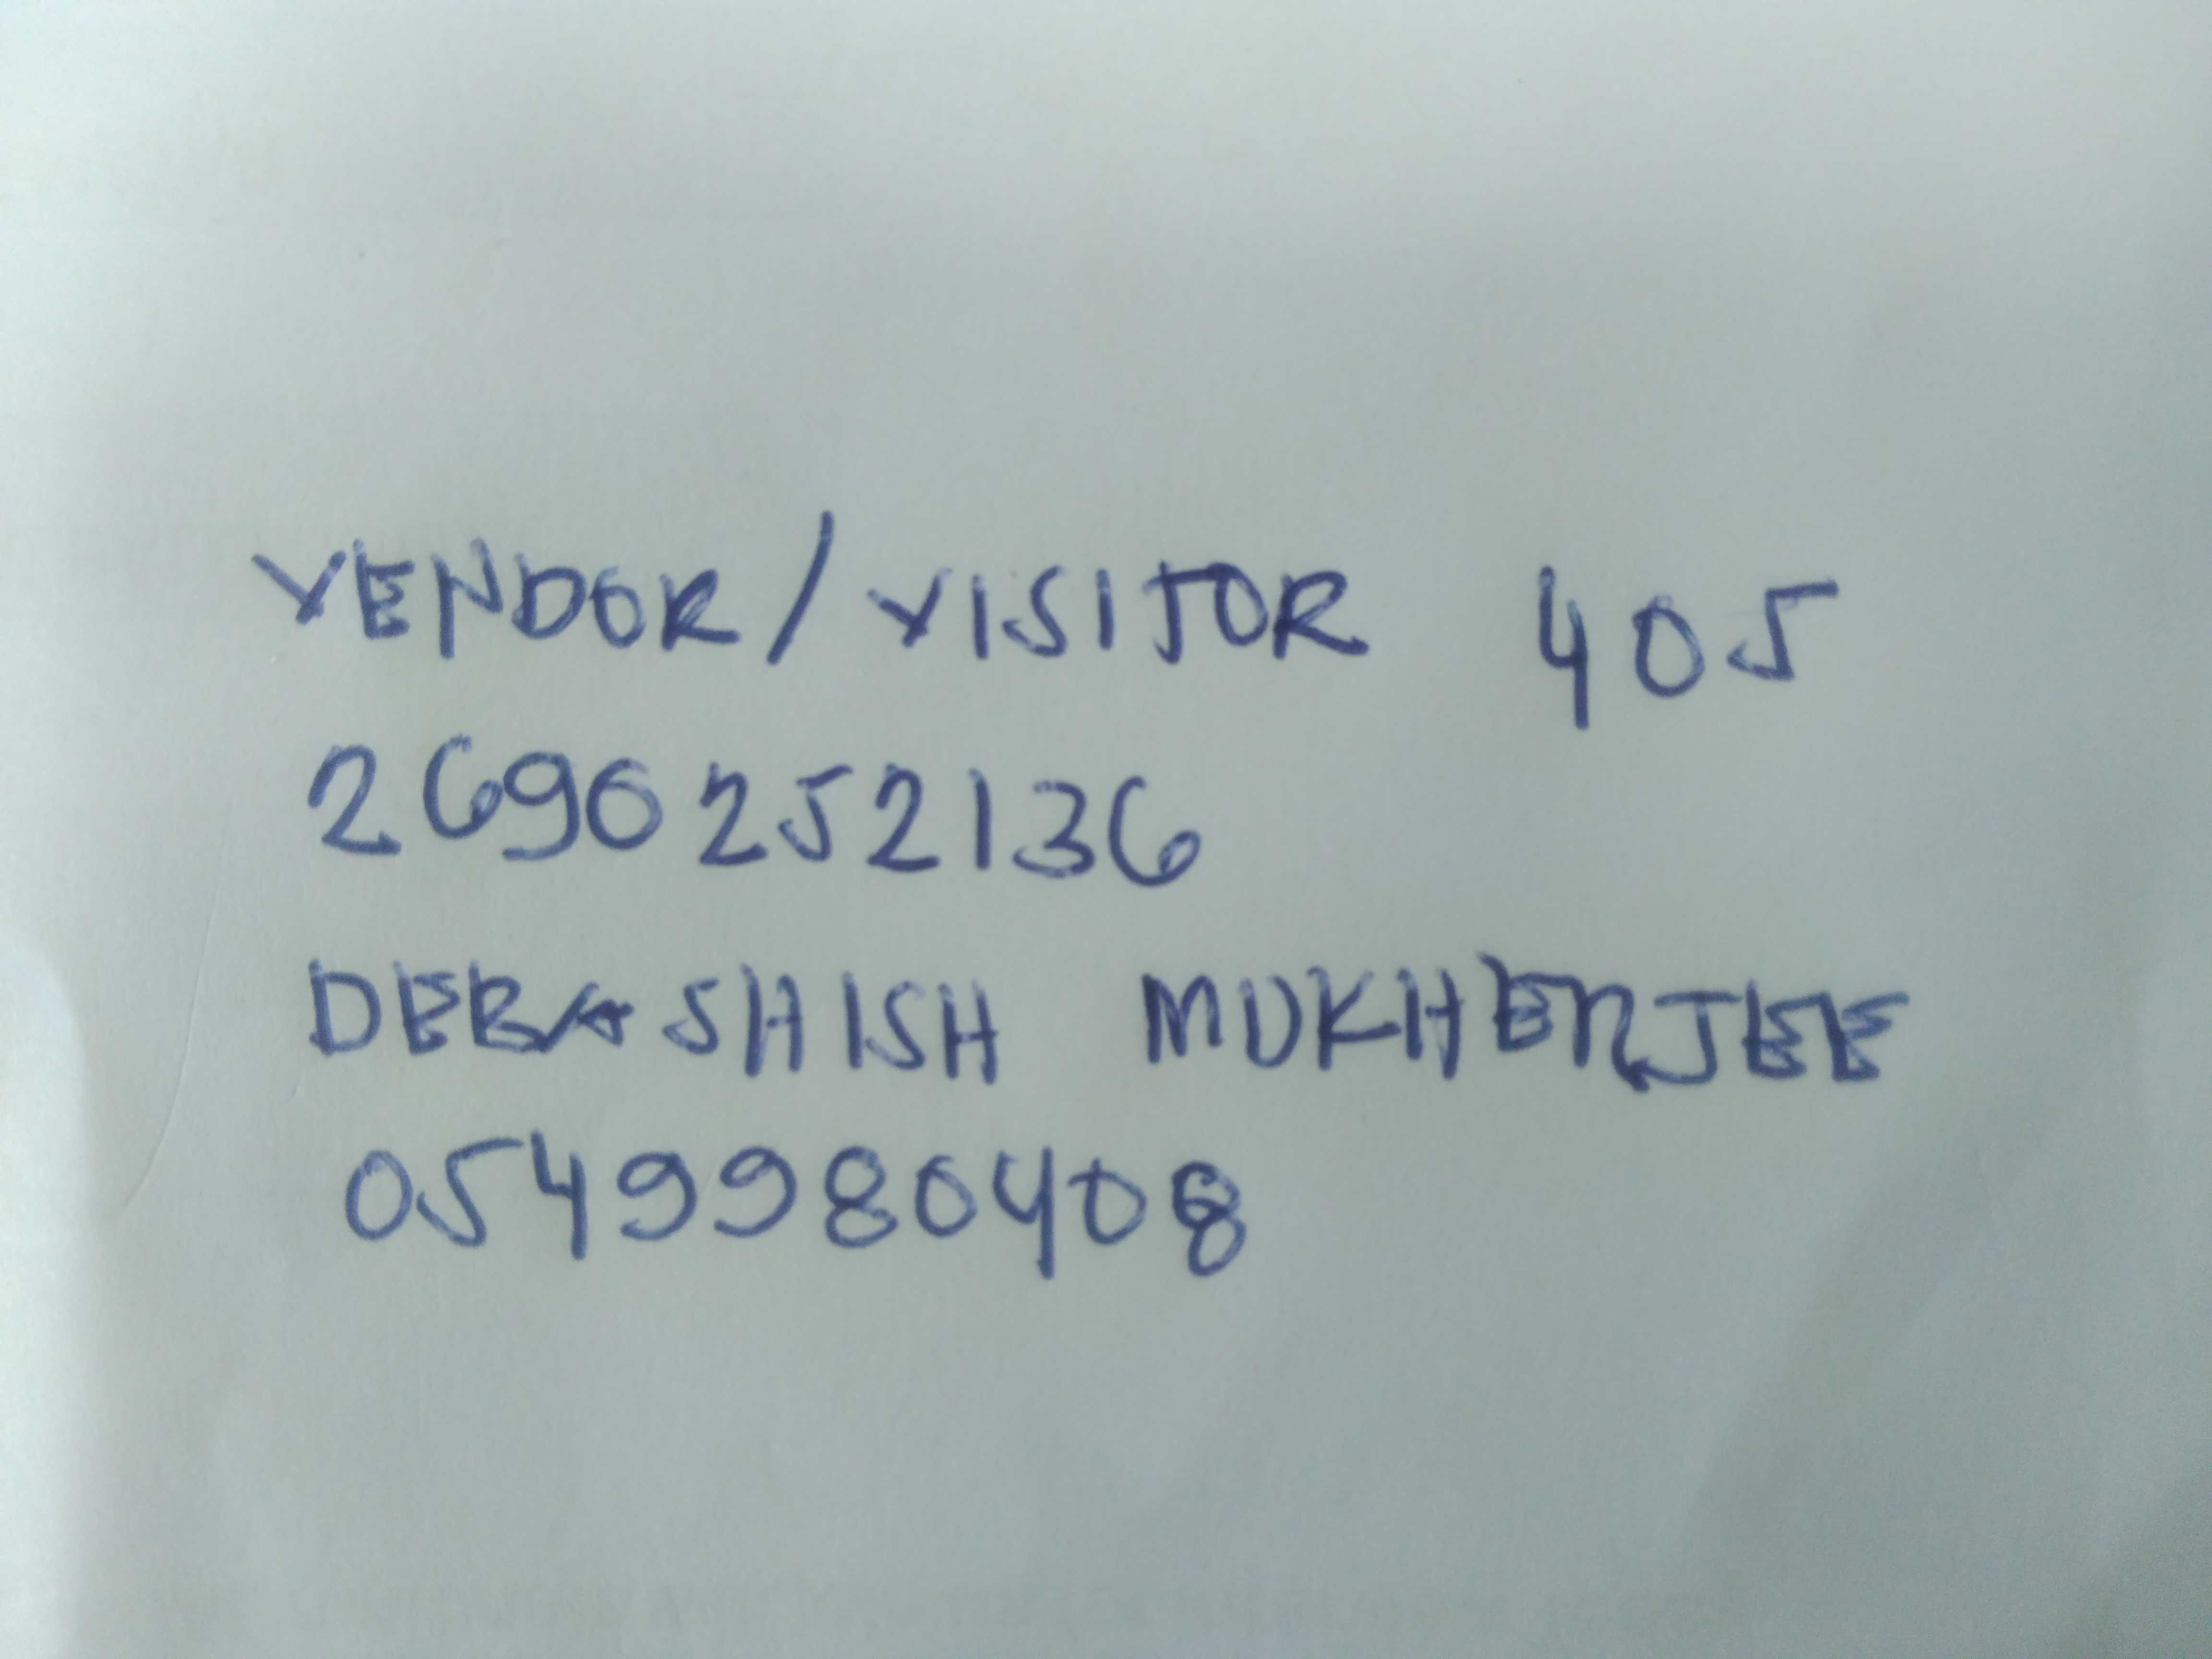 VENDOR/VISITOR 405
2690252136
DEBASHISH MUKHERJEE
0549980408